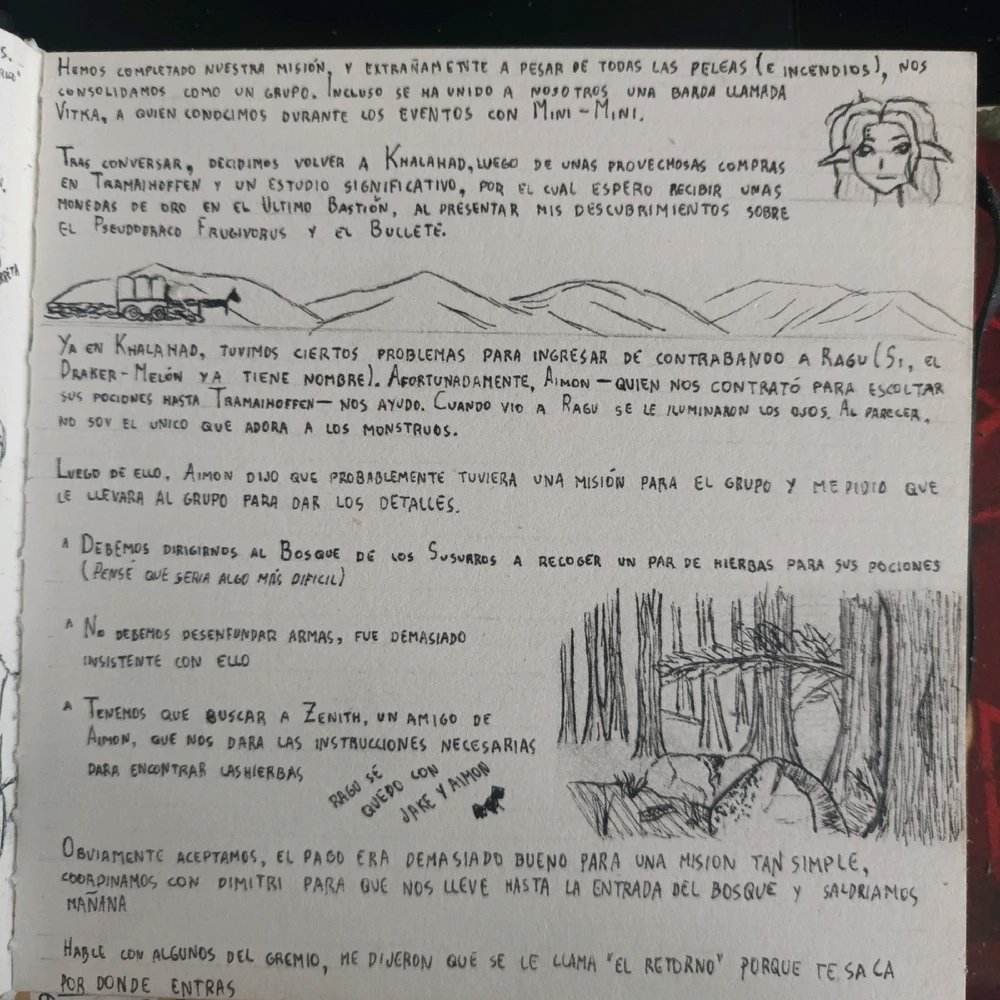 HEMOS COMPLETADO NUESTRA MISIÓN, Y EXTRAÑAMENTE A PESAR DE TODAS LAS PELEAS (E INCENDIOS), NOS
CONSOLIDAMOS COMO UN GRUPO. INCLUSO SE HA UNIDO A NOSOTROS UNA BARDA LLAMADA
VITKA, A QUIEN CONOCIMOS DURANTE LOS EVENTOS CON MINI-MINI.
TRAS CONVERSAR, DECIDIMOS VOLVER A KHALAHAD, LUEGO DE UNAS PROVECHOSAS COMPRAS
EN TRAMAIHOFFEN Y UN ESTUDIO SIGNIFICATIVO, POR EL CUAL ESPERO RECIBIR UNAS
MONEDAS DE ORO EN EL ULTIMO BASTIÓN, AL PRESENTAR MIS DESCUBRIMIENTOS SOBRE
EL PSEUDODRACO FRUGIVORUS Y EL BULLETE.
YA EN KHALAHAD, TUVIMOS CIERTOS PROBLEMAS PARA INGRESAR DE CONTRABANDO A RAGU (SI, EL
DRAKER-MELÓN YA TIENE NOMBRE). AFORTUNADAMENTE, AIMON —QUIEN NOS CONTRATÓ PARA ESCOLTAR
SUS POCIONES HASTA TRAMAIHOFFEN— NOS AYUDO. CUANDO VIO A RAGU SE LE ILUMINARON LOS OJOS. AL PARECER,
NO SOY EL UNICO QUE ADORA A LOS MONSTRUOS.
LUEGO DE ELLO, AIMON DIJO QUE PROBABLEMENTE TUVIERA UNA MISIÓN PARA EL GRUPO Y ME PIDIO QUE
LE LLEVARA AL GRUPO PARA DAR LOS DETALLES.
* DEBEMOS DIRIGIRNOS AL BOSQUE DE LOS SUSURROS A RECOGER UN PAR DE HIERBAS PARA SUS POCIONES
(PENSÉ QUE SERIA ALGO MÁS DIFICIL)
* NO DEBEMOS DESENFUNDAR ARMAS, FUE DEMASIADO
INSISTENTE CON ELLO
* TENEMOS QUE BUSCAR A ZENITH, UN AMIGO DE
AIMON, QUE NOS DARA LAS INSTRUCCIONES NECESARIAS
PARA ENCONTRAR LAS HIERBAS
RAGU SE
QUEDO CON
JAKE Y AIMON
OBVIAMENTE ACEPTAMOS, EL PAGO ERA DEMASIADO BUENO PARA UNA MISION TAN SIMPLE,
COORDINAMOS CON DIMITRI PARA QUE NOS LLEVE HASTA LA ENTRADA DEL BOSQUE Y SALDRIAMOS
MAÑANA
HABLE CON ALGUNOS DEL GREMIO, ME DIJERON QUE SE LE LLAMA "EL RETORNO" PORQUE TE SACA
POR DONDE ENTRAS